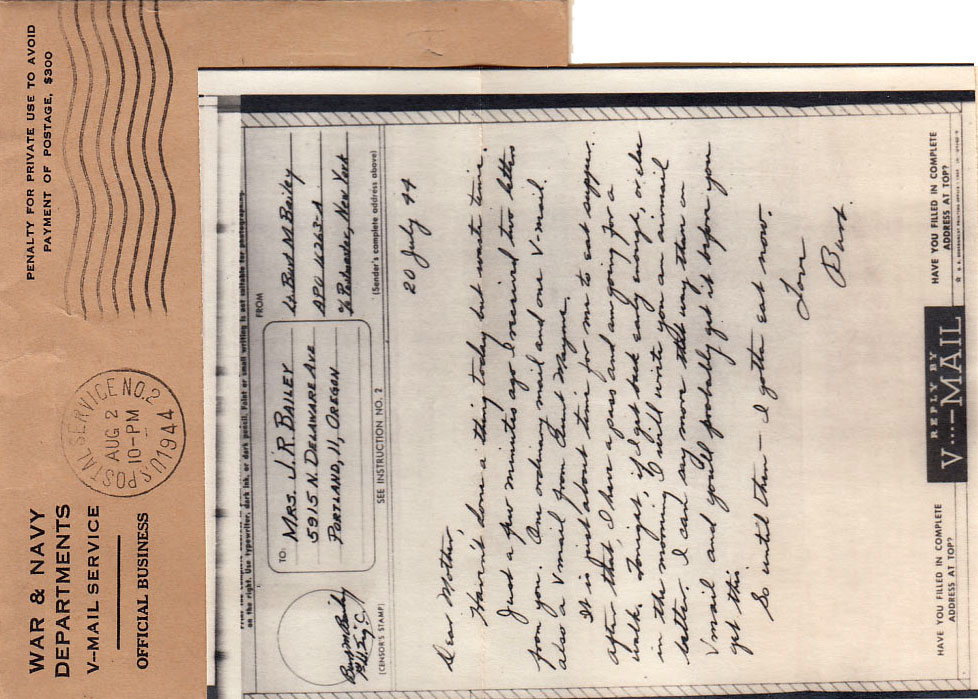 WAR & NAVY
DEPARTMENTS
V-MAIL SERVICE
OFFICIAL BUSINESS
U.S. POSTAL SERVICE NO. 2
AUG 2
10-PM
1944
PENALTY FOR PRIVATE USE TO AVOID
PAYMENT OF POSTAGE, $300
on the right. Use typewriter, dark ink, or dark pencil. Faint or small writing is not suitable for photographing.
TO:
MRS. J. R. BAILEY
5915 N. DELAWARE AVE
PORTLAND, 11, OREGON
FROM
Lt. Burd M Bailey
APO
c/o Postmaster, New York
(Sender's complete address above)
(CENSOR'S STAMP)
SEE INSTRUCTION NO. 2
20 July 44
Dear Mother,
Haven't done a thing today but waste time.
Just a few minutes ago I received two letters
from you. One ordinary mail and one V-mail.
also a V mail from Aunt Mayme.
It is just about time for me to eat supper.
after that, I have a pass and am going for a
walk. Tonight, if I get back early enough, or else
in the morning I will write you an airmail
letter. I can say more that way than on
V mail and you'll probably get it before you
get this.
So until then — I gotta eat now.
Love
HAVE YOU FILLED IN COMPLETE
ADDRESS AT TOP?
REPLY BY
V...—MAIL
HAVE YOU FILLED IN COMPLETE
ADDRESS AT TOP?